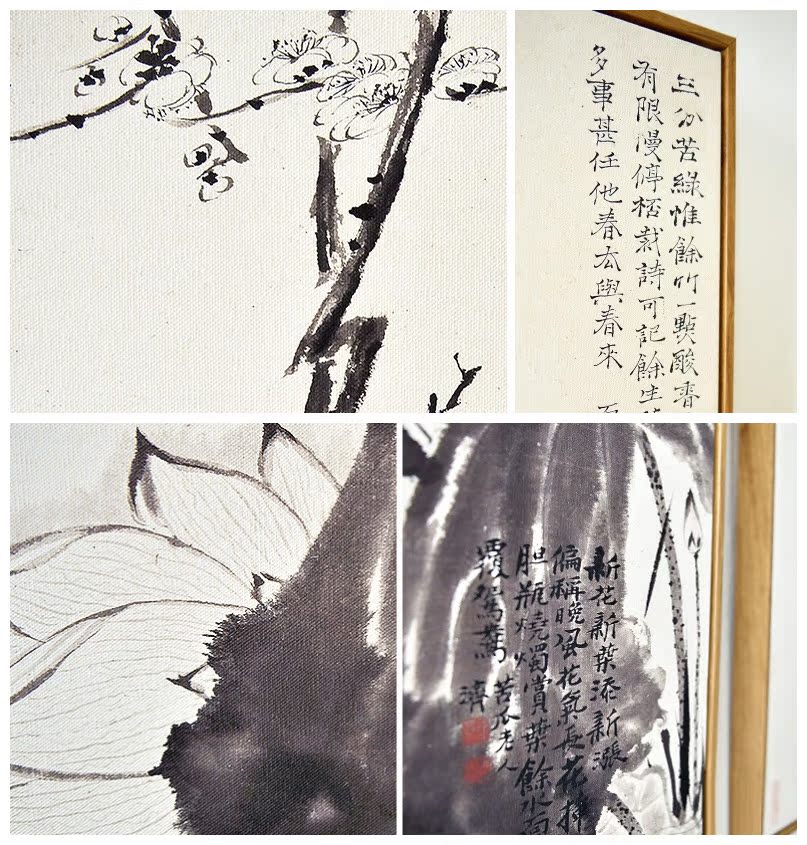 三分苦綠惟餘竹一點酸香
有限漫停桮裁詩可記餘生
多事甚任他春去與春來
新花新葉添新漲
偏稱晚風花氣長花插
胆瓶燒燭賞葉餘水面
覆鴛鴦
苦瓜老人
濟